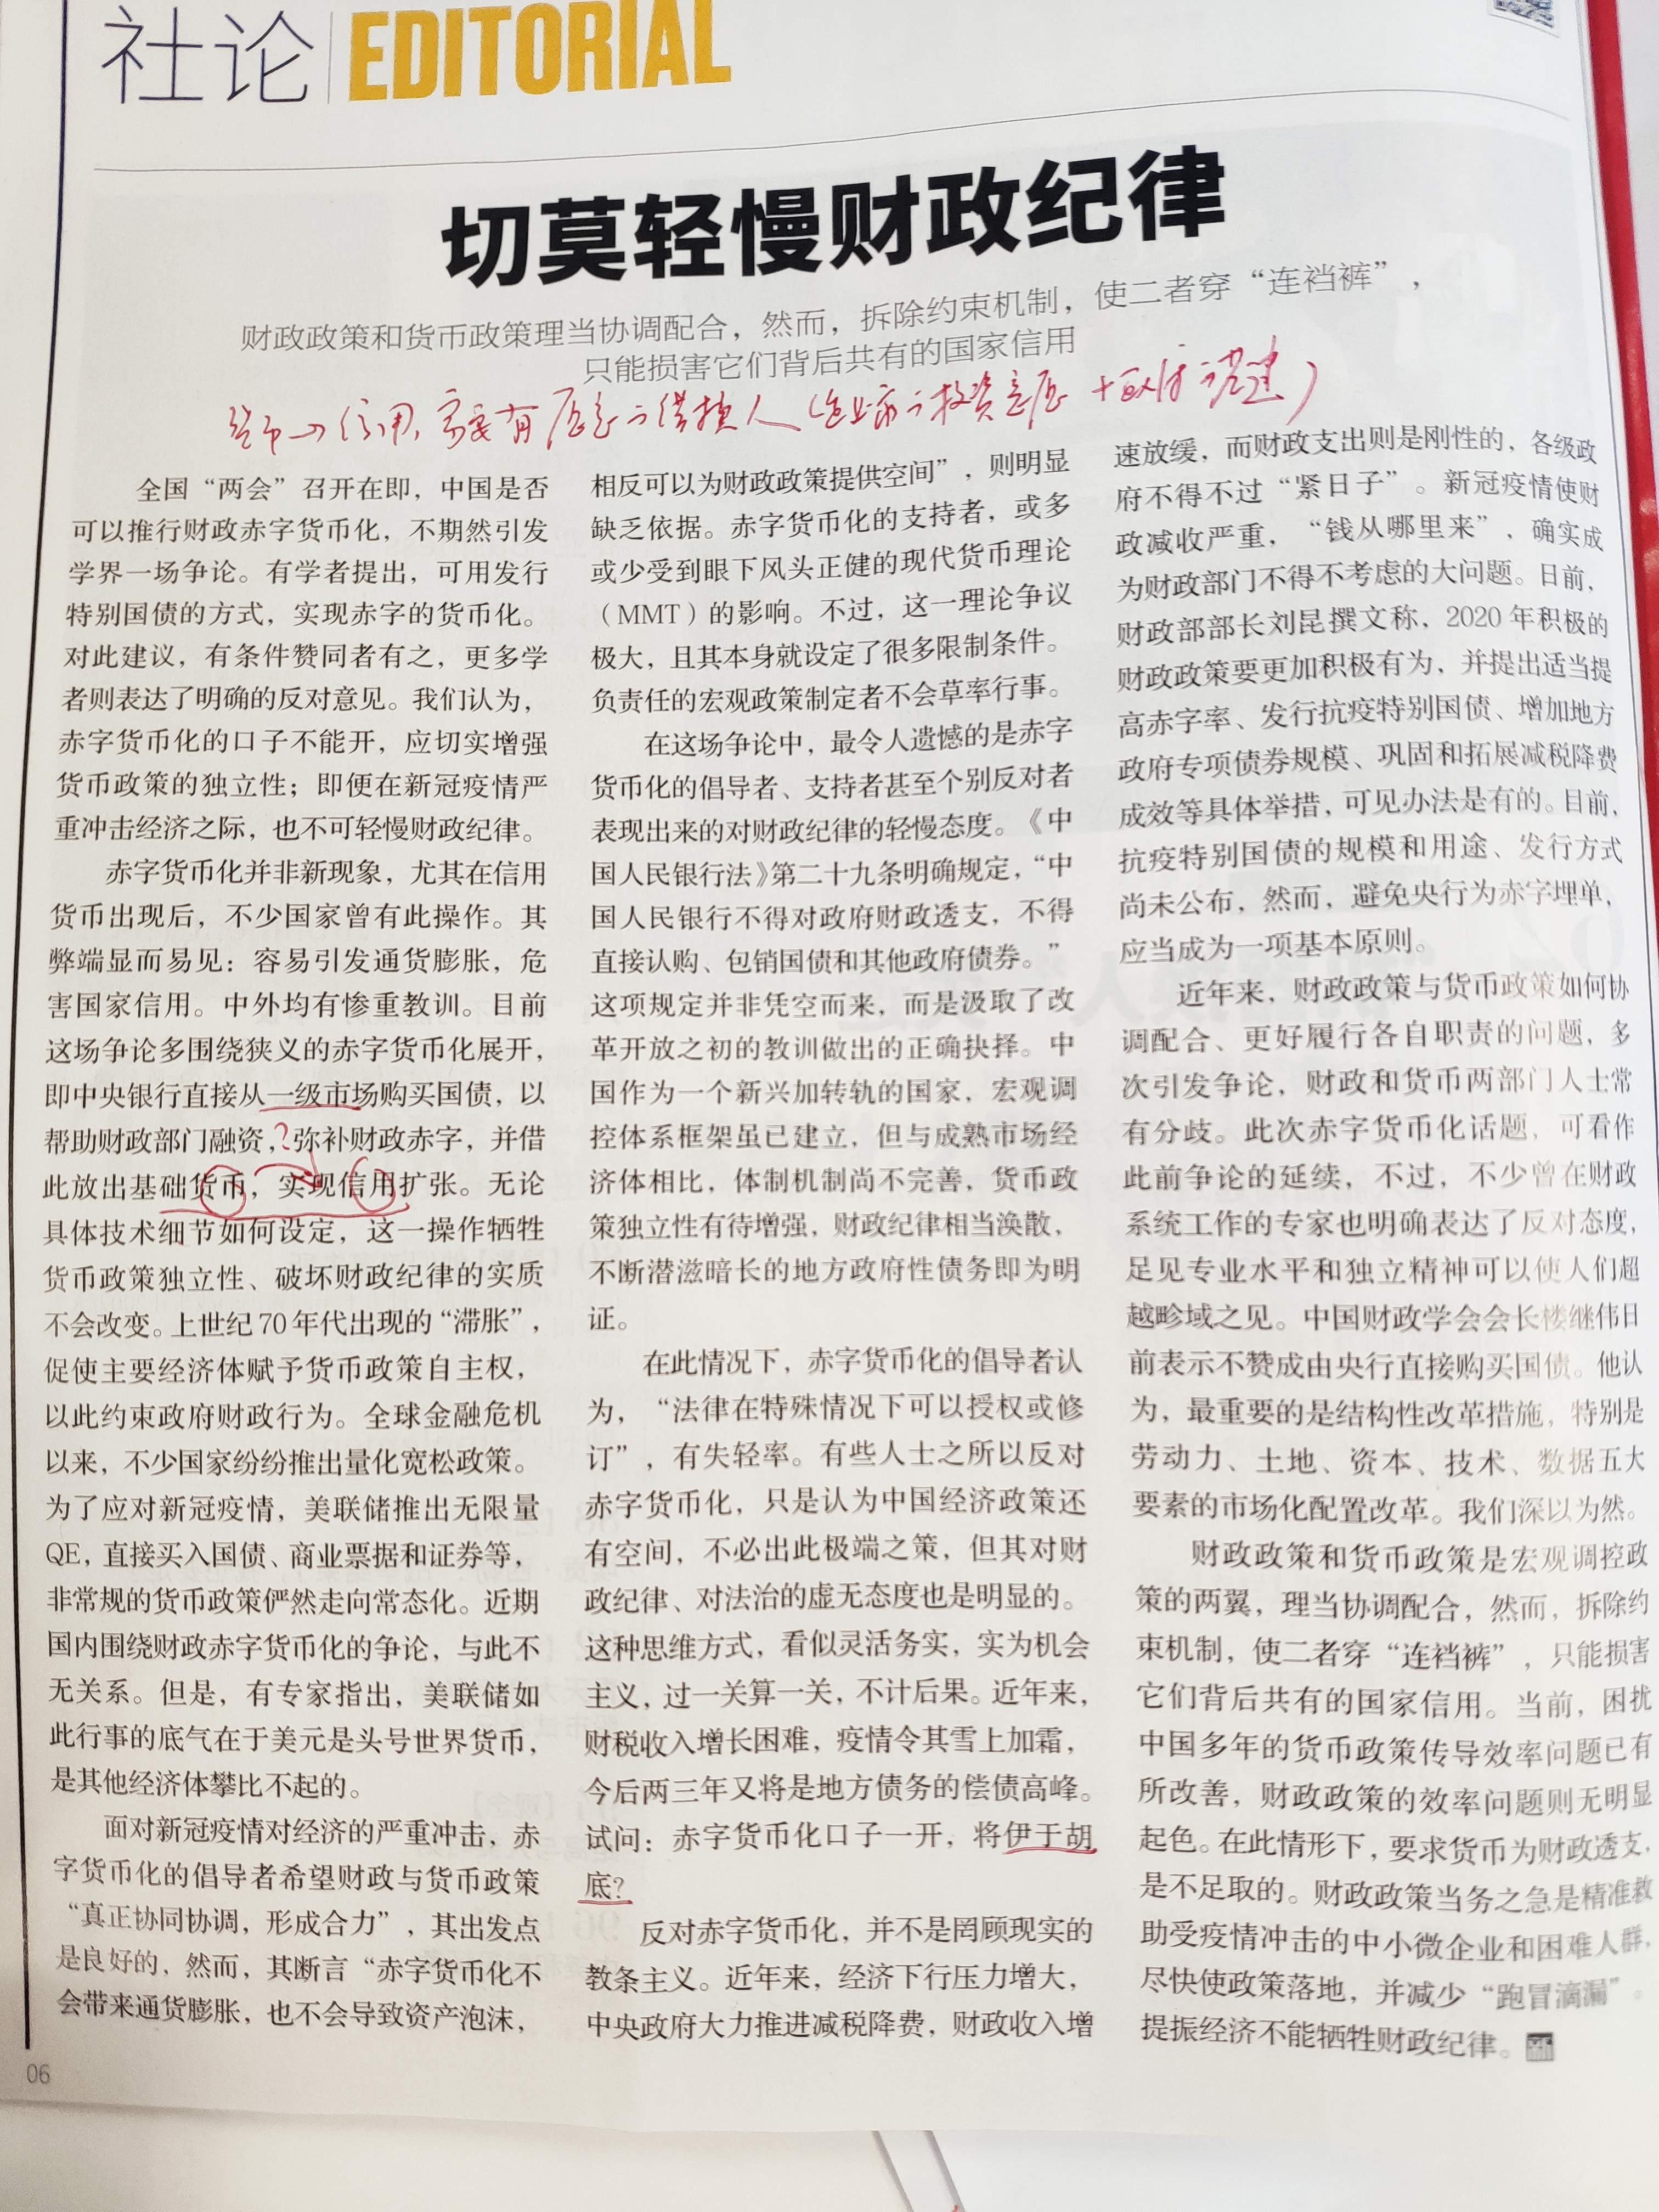 社论 EDITORIAL
切莫轻慢财政纪律
财政政策和货币政策理当协调配合，然而，拆除约束机制，使二者穿“连裆裤”，
只能损害它们背后共有的国家信用
货币→信用，需要有
全国“两会”召开在即，中国是否
可以推行财政赤字货币化，不期然引发
学界一场争论。有学者提出，可用发行
特别国债的方式，实现赤字的货币化。
对此建议，有条件赞同者有之，更多学
者则表达了明确的反对意见。我们认为，
赤字货币化的口子不能开，应切实增强
货币政策的独立性；即便在新冠疫情严
重冲击经济之际，也不可轻慢财政纪律。
赤字货币化并非新现象，尤其在信用
货币出现后，不少国家曾有此操作。其
弊端显而易见：容易引发通货膨胀，危
害国家信用。中外均有惨重教训。目前
这场争论多围绕狭义的赤字货币化展开，
即中央银行直接从一级市场购买国债，以
帮助财政部门融资，?弥补财政赤字，并借
此放出基础货币，实现信用扩张。无论
具体技术细节如何设定，这一操作牺牲
货币政策独立性、破坏财政纪律的实质
不会改变。上世纪70年代出现的“滞胀”，
促使主要经济体赋予货币政策自主权，
以此约束政府财政行为。全球金融危机
以来，不少国家纷纷推出量化宽松政策。
为了应对新冠疫情，美联储推出无限量
QE，直接买入国债、商业票据和证券等，
非常规的货币政策俨然走向常态化。近期
国内围绕财政赤字货币化的争论，与此不
无关系。但是，有专家指出，美联储如
此行事的底气在于美元是头号世界货币，
是其他经济体攀比不起的。
面对新冠疫情对经济的严重冲击，赤
字货币化的倡导者希望财政与货币政策
“真正协同协调，形成合力”，其出发点
是良好的，然而，其断言“赤字货币化不
会带来通货膨胀，也不会导致资产泡沫，
相反可以为财政政策提供空间”，则明显
缺乏依据。赤字货币化的支持者，或多
或少受到眼下风头正健的现代货币理论
（MMT）的影响。不过，这一理论争议
极大，且其本身就设定了很多限制条件。
负责任的宏观政策制定者不会草率行事。
在这场争论中，最令人遗憾的是赤字
货币化的倡导者、支持者甚至个别反对者
表现出来的对财政纪律的轻慢态度。《中
国人民银行法》第二十九条明确规定，“中
国人民银行不得对政府财政透支，不得
直接认购、包销国债和其他政府债券。”
这项规定并非凭空而来，而是汲取了改
革开放之初的教训做出的正确抉择。中
国作为一个新兴加转轨的国家，宏观调
控体系框架虽已建立，但与成熟市场经
济体相比，体制机制尚不完善，货币政
策独立性有待增强，财政纪律相当涣散，
不断潜滋暗长的地方政府性债务即为明
证。
在此情况下，赤字货币化的倡导者认
为，“法律在特殊情况下可以授权或修
订”，有失轻率。有些人士之所以反对
赤字货币化，只是认为中国经济政策还
有空间，不必出此极端之策，但其对财
政纪律、对法治的虚无态度也是明显的。
这种思维方式，看似灵活务实，实为机会
主义，过一关算一关，不计后果。近年来，
财税收入增长困难，疫情令其雪上加霜，
今后两三年又将是地方债务的偿债高峰。
试问：赤字货币化口子一开，将伊于胡
底？
反对赤字货币化，并不是罔顾现实的
教条主义。近年来，经济下行压力增大，
中央政府大力推进减税降费，财政收入增
速放缓，而财政支出则是刚性的，各级政
府不得不过“紧日子”。新冠疫情使财
政减收严重，“钱从哪里来”，确实成
为财政部门不得不考虑的大问题。日前，
财政部部长刘昆撰文称，2020年积极的
财政政策要更加积极有为，并提出适当提
高赤字率、发行抗疫特别国债、增加地方
政府专项债券规模、巩固和拓展减税降费
成效等具体举措，可见办法是有的。目前，
抗疫特别国债的规模和用途、发行方式
尚未公布，然而，避免央行为赤字埋单，
应当成为一项基本原则。
近年来，财政政策与货币政策如何协
调配合、更好履行各自职责的问题，多
次引发争论，财政和货币两部门人士常
有分歧。此次赤字货币化话题，可看作
此前争论的延续，不过，不少曾在财政
系统工作的专家也明确表达了反对态度，
足见专业水平和独立精神可以使人们超
越畛域之见。中国财政学会会长楼继伟日
前表示不赞成由央行直接购买国债。他认
为，最重要的是结构性改革措施，特别是
劳动力、土地、资本、技术、数据五大
要素的市场化配置改革。我们深以为然。
财政政策和货币政策是宏观调控政
策的两翼，理当协调配合，然而，拆除约
束机制，使二者穿“连裆裤”，只能损害
它们背后共有的国家信用。当前，困扰
中国多年的货币政策传导效率问题已有
所改善，财政政策的效率问题则无明显
起色。在此情形下，要求货币为财政透支，
是不足取的。财政政策当务之急是精准救
助受疫情冲击的中小微企业和困难人群，
尽快使政策落地，并减少“跑冒滴漏”。
提振经济不能牺牲财政纪律。
06